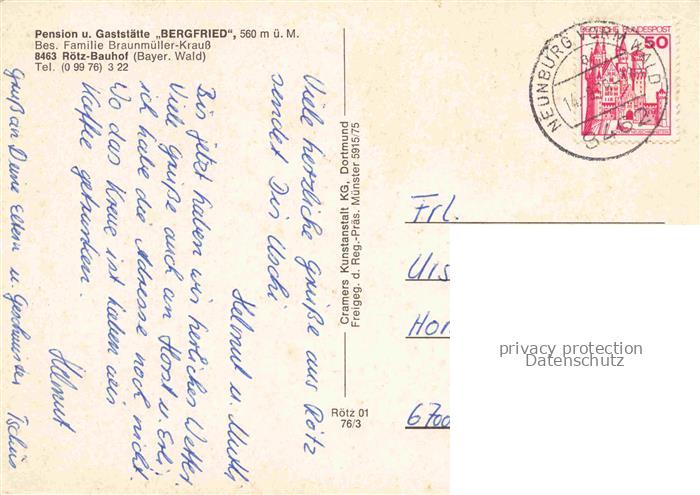 Pension u. Gaststätte „BERGFRIED“, 560 m ü. M.
Bes. Familie Braunmüller-Krauß
8463 Rötz-Bauhof (Bayer. Wald)
Tel. (0 99 76) 3 22
Viele herzliche Grüße aus Rötz
sendet Dir Uschi
Helmut u. Mutti
Bis jetzt haben wir herliches Wetter.
Viele Grüße auch an Horst u. Erli
ich habe die Adresse noch nicht.
Wo das Kreuz ist haben wir
Kaffe getrunken.
Helmut
Gruß an Deine Eltern u. Geschwister Tschüs
Cramers Kunstanstalt KG, Dortmund
Freigeg. d. Reg.-Präs. Münster 5915/75
Rötz 01
76/3
NEUNBURG VORM WALD
8462
DEUTSCHE BUNDESPOST
50
Frl.
6700
privacy protection
Datenschutz